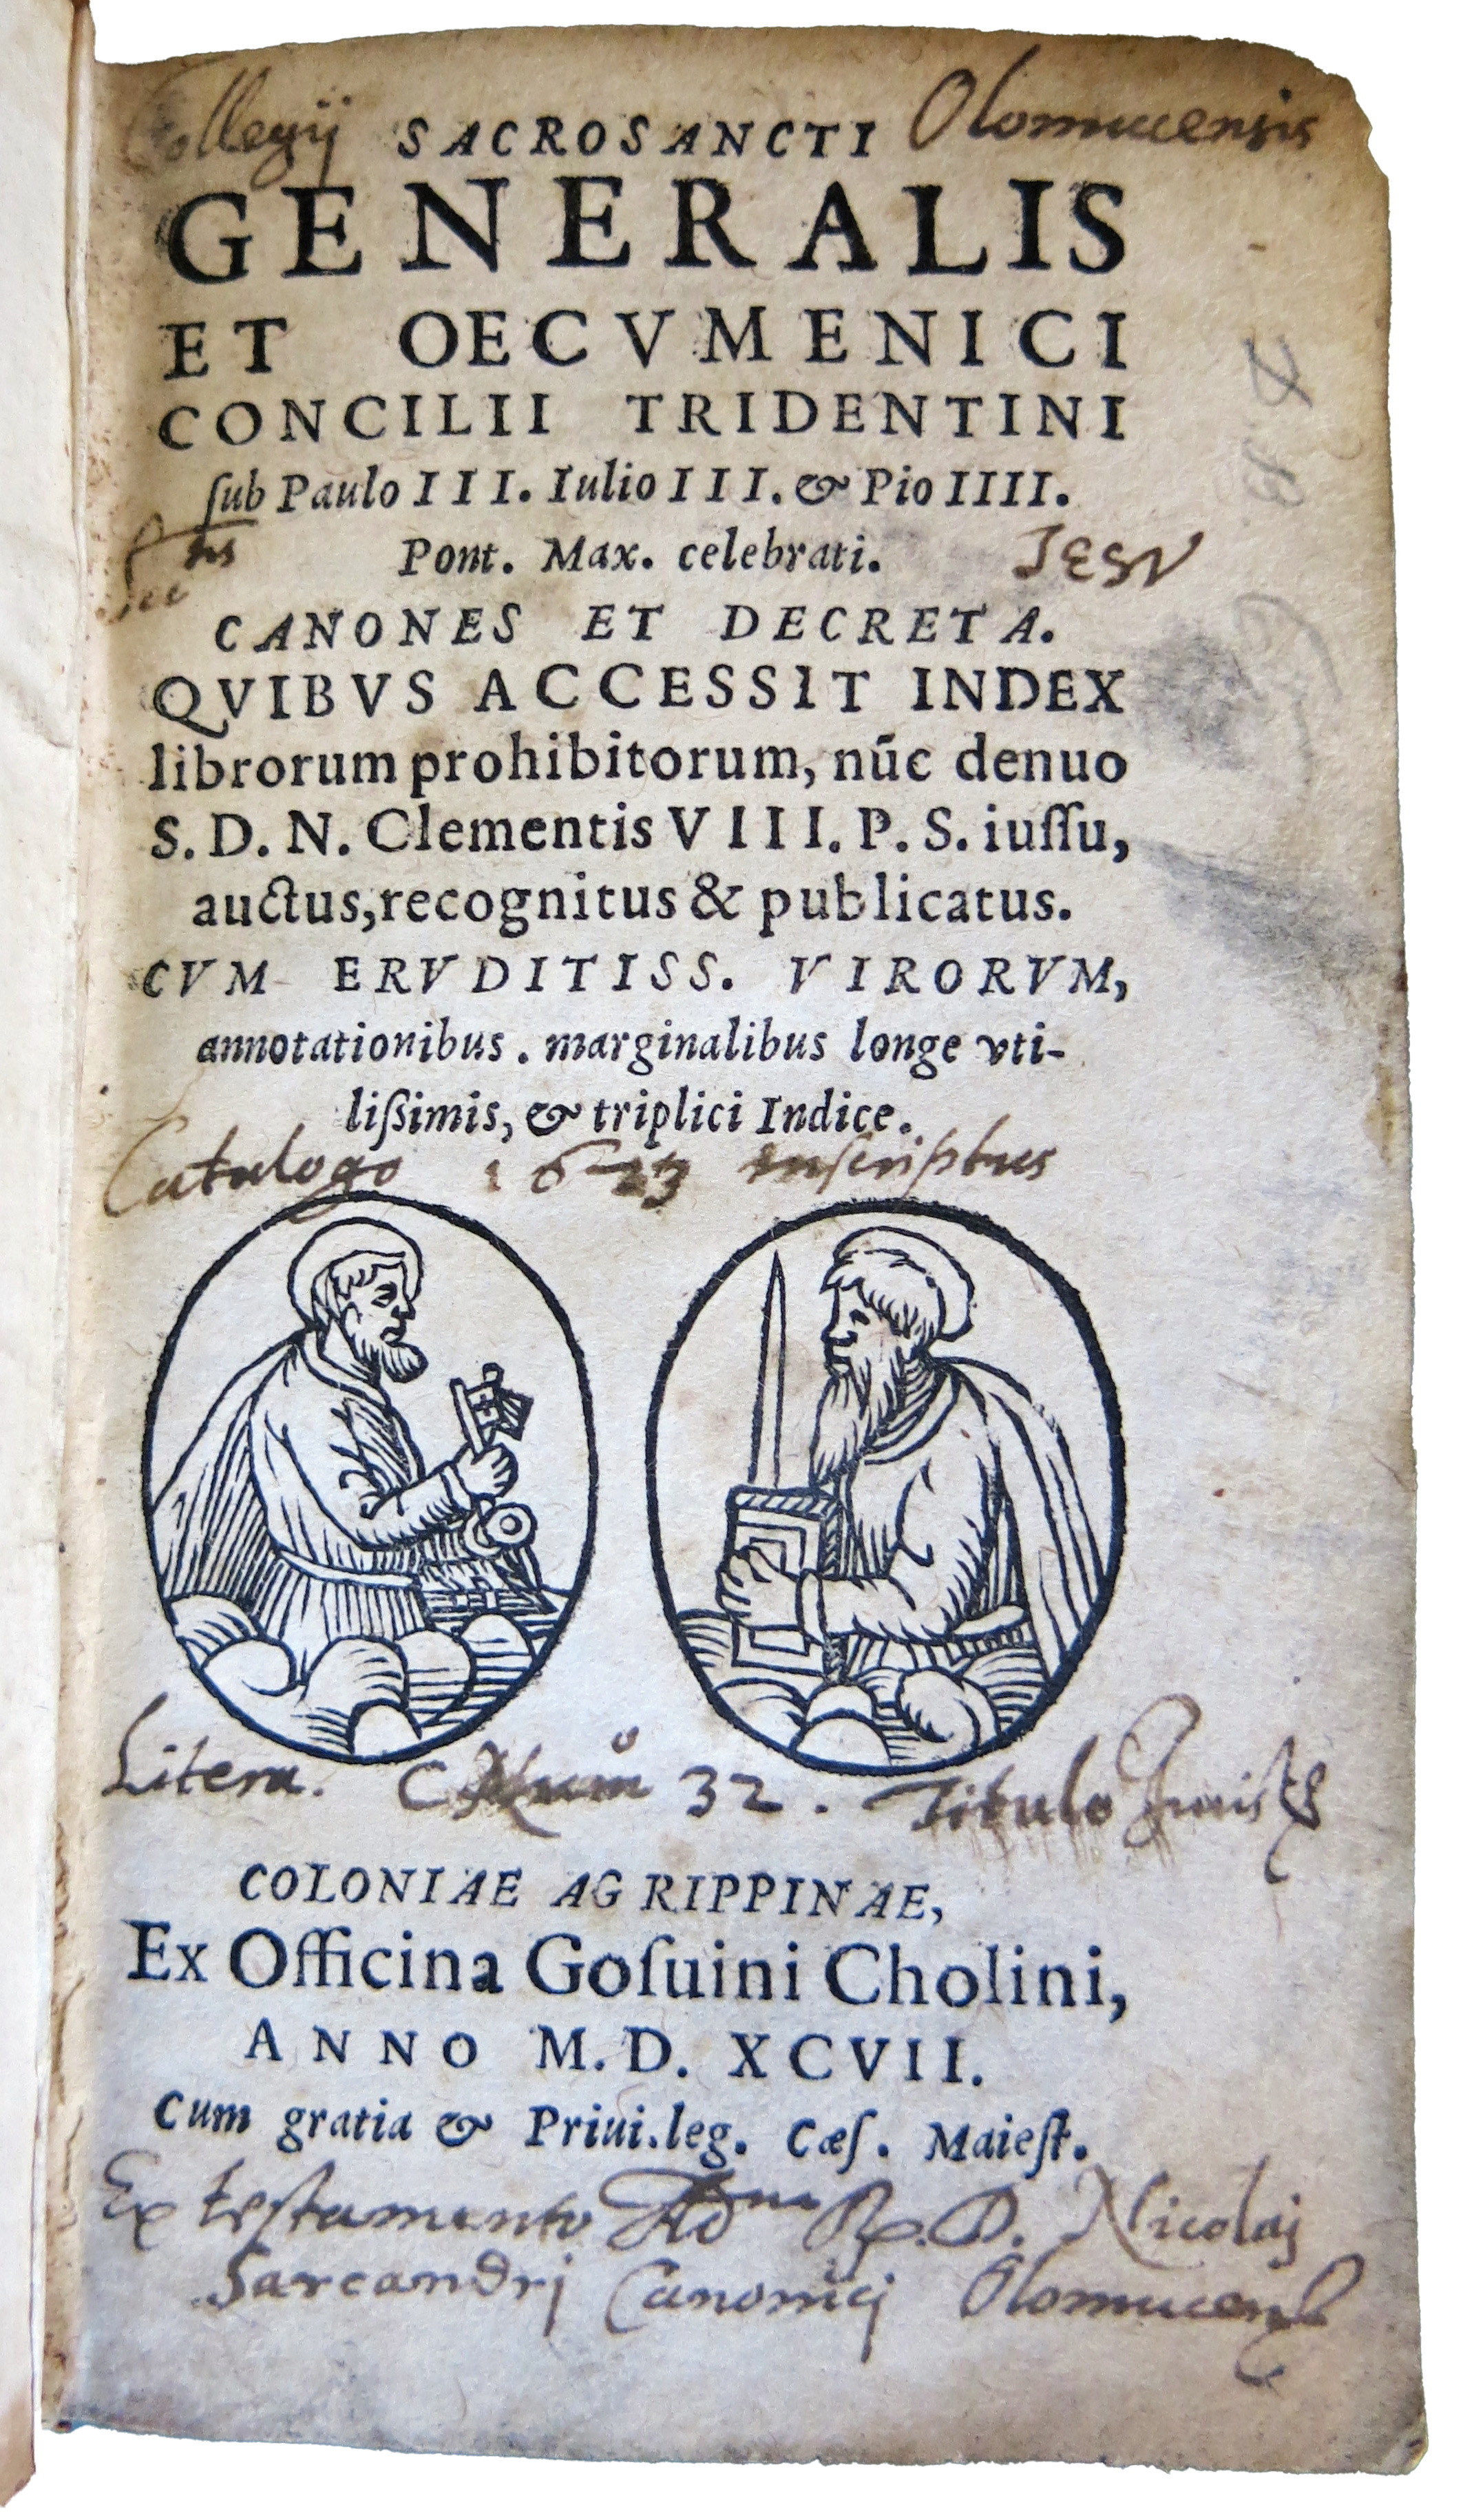 Collegij SACROSANCTI Olomucensis
GENERALIS
ET OECVMENICI
CONCILII TRIDENTINI
ſub Paulo III. Iulio III. & Pio IIII.
Pont. Max. celebrati.
Soctis IESV
CANONES ET DECRETA.
QVIBVS ACCESSIT INDEX
librorum prohibitorum, nūc denuo
S. D. N. Clementis VIII. P. S. iuſſu,
auctus, recognitus & publicatus.
CVM ERVDITISS. VIRORVM,
annotationibus. marginalibus longe vti-
liſsimis, & triplici Indice.
Catalogo 1623 inſcriptus
Litera. C Numo 32. Titulo
COLONIAE AGRIPPINAE,
Ex Officina Goſuini Cholini,
ANNO M. D. XCVII.
Cum gratia & Priui.leg. Cæſ. Maieſt.
Ex teſtamento Adm R. D. Nicolaj
Sarcandrj Canonicj Olomucens